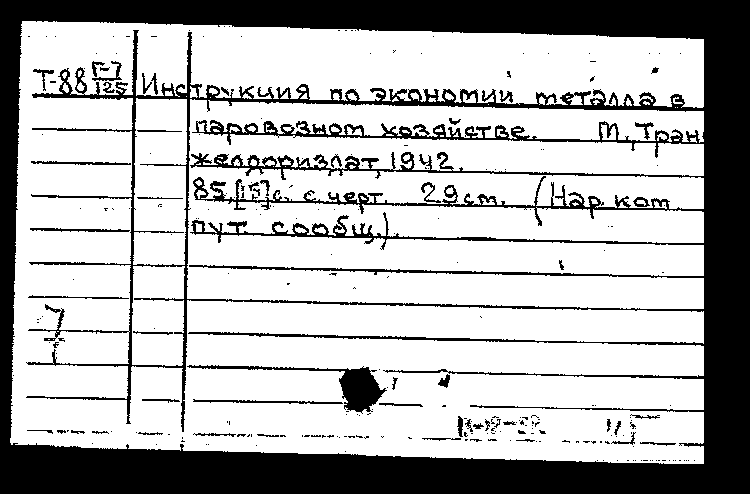 Т-88 Г-7/125 Инструкция по экономии металла в
паровозном хозяйстве. М., Транс
желдориздат, 1942.
85,[15]с. с черт. 29 см. (Нар ком
пут. сообщ.).
7